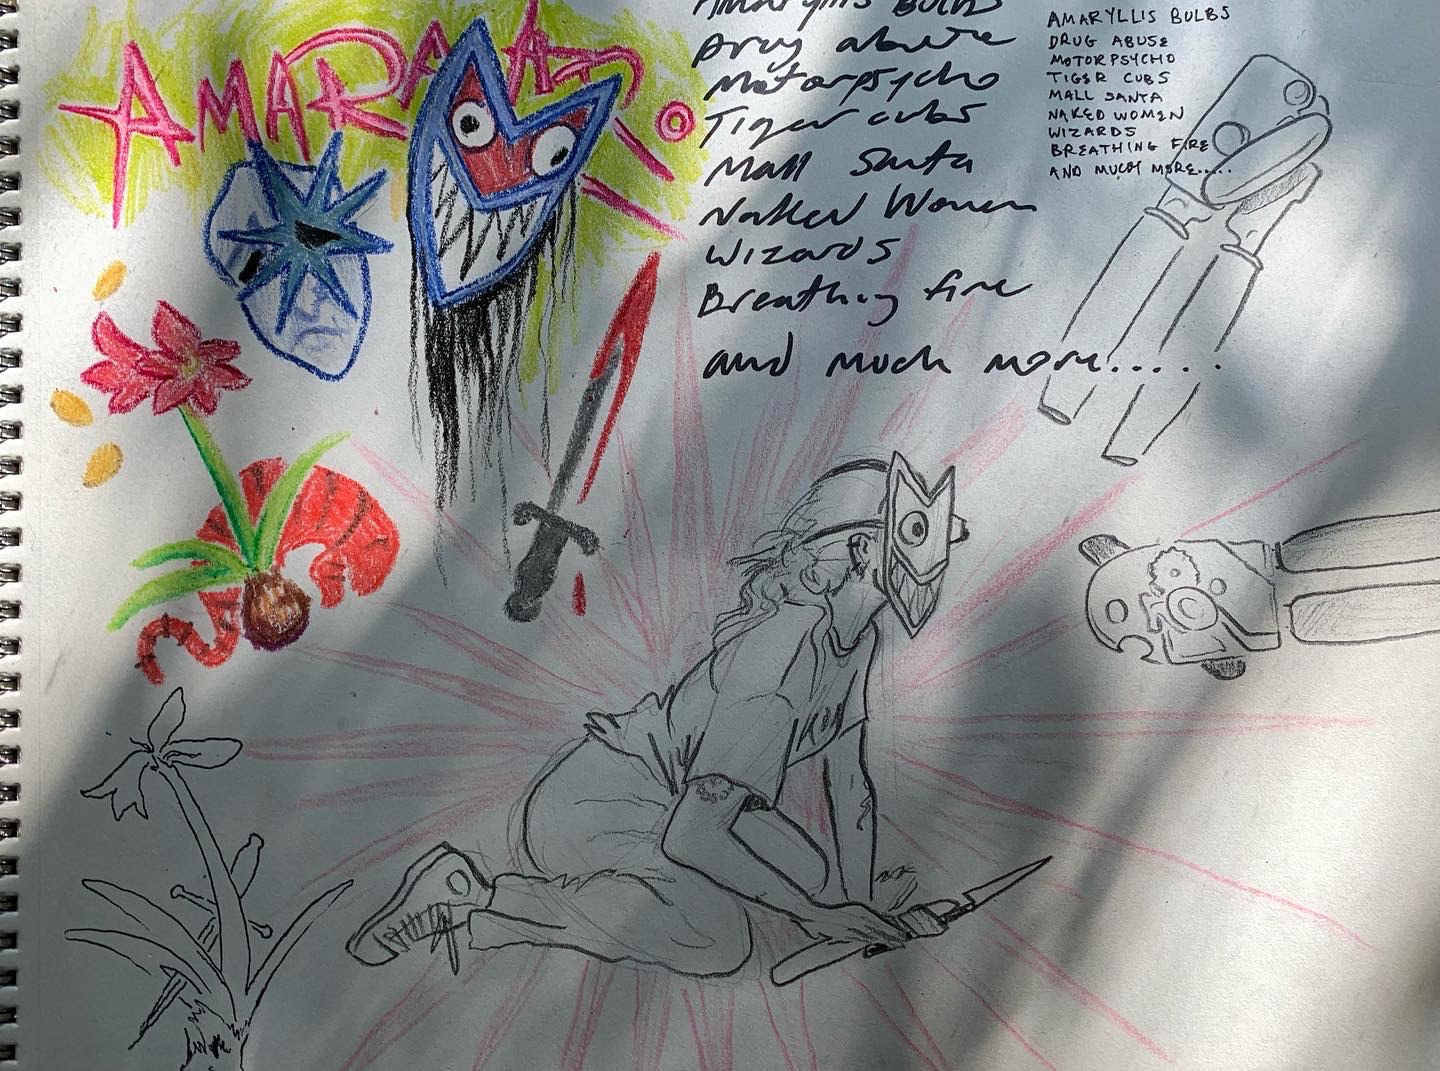 AMARA
Amaryllis Bulbs
Drug abuse
Motorpsycho
Tiger cubs
Mall Santa
Naked Women
Wizards
Breathing fire
and much more.....
AMARYLLIS BULBS
DRUG ABUSE
MOTORPSYCHO
TIGER CUBS
MALL SANTA
NAKED WOMEN
WIZARDS
BREATHING FIRE
AND MUCH MORE.....